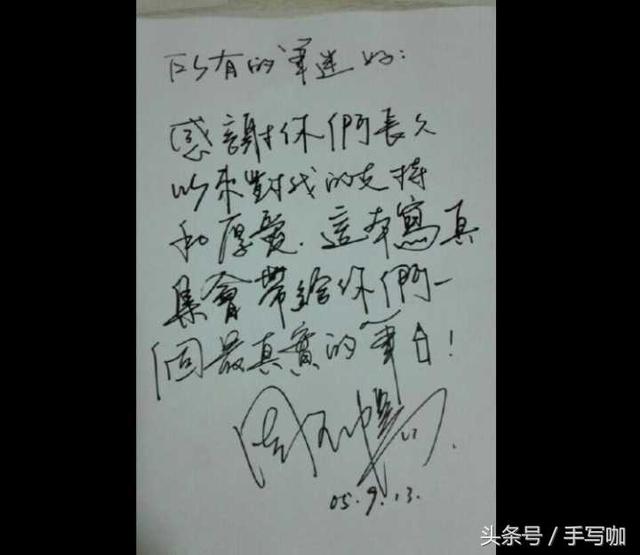 所有的軍迷好：
感謝你們長久
以來對我的支持
和厚愛．這本寫真
集會帶給你們一
個最真實的軍！
05.9.13.
头条号／手写咖